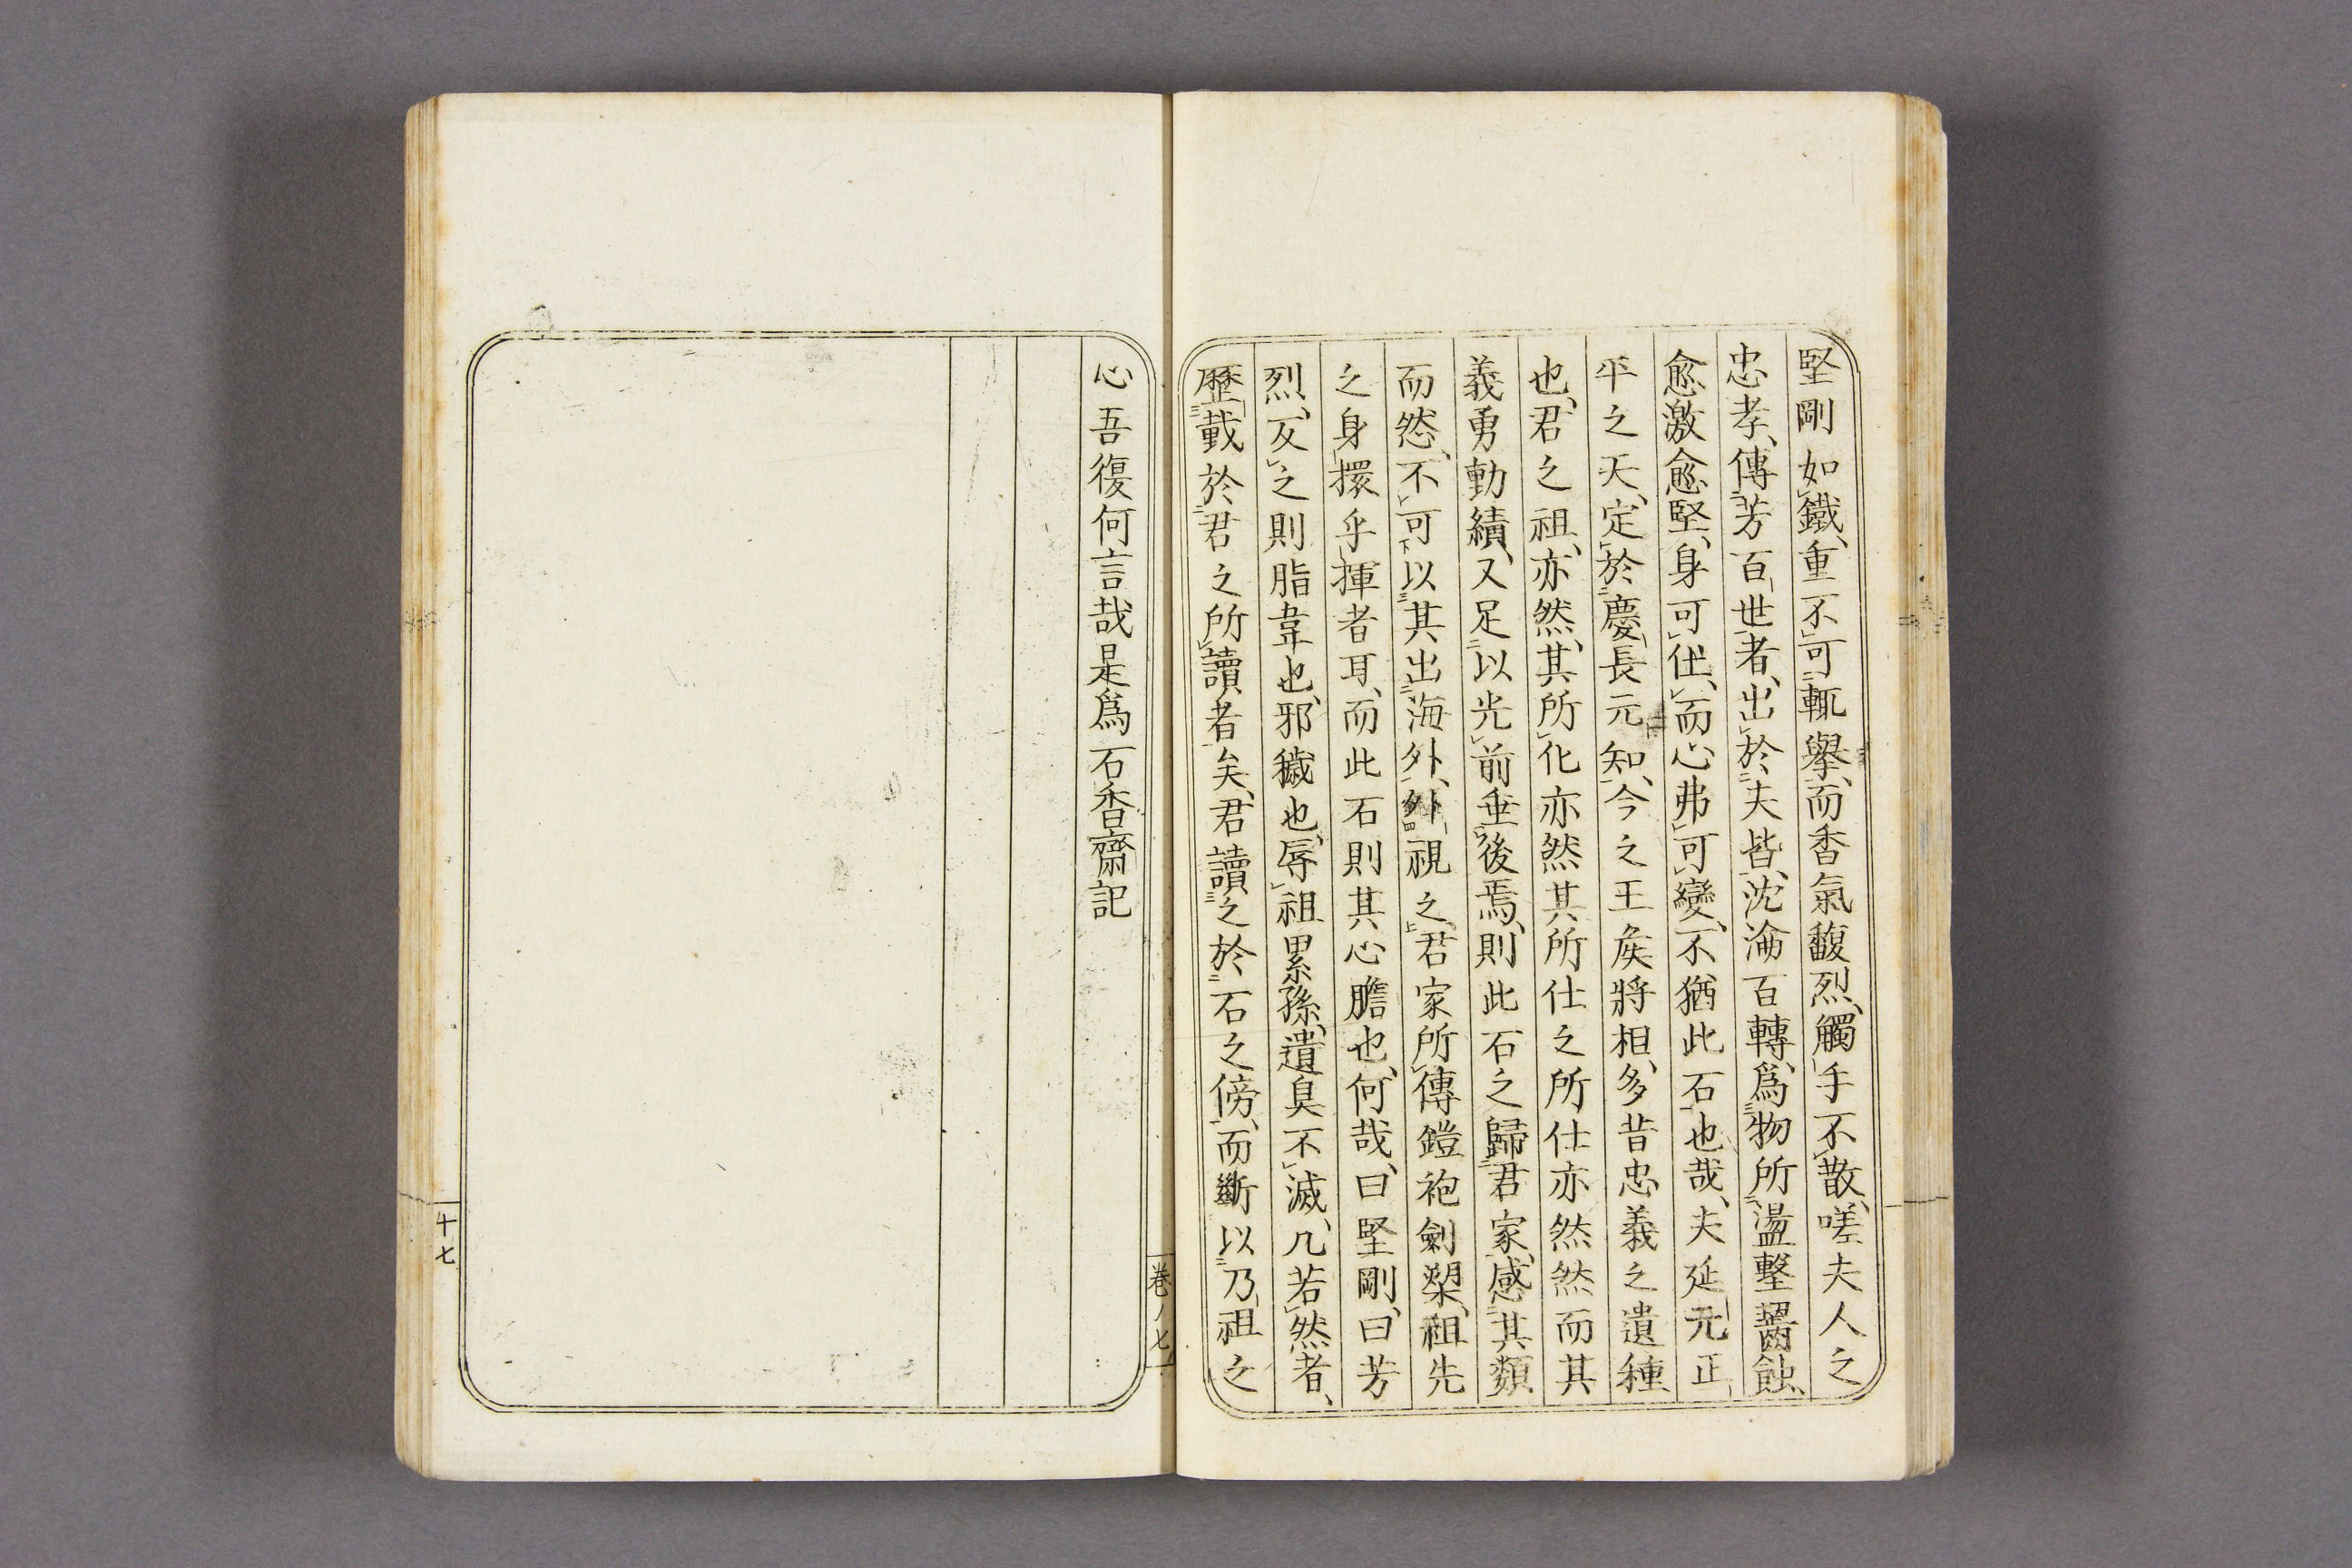 堅剛如鐵、重不可輒擧、而香氣馥烈、觸手不散、嗟夫人之
忠孝、傳芳百世者、出於夫皆、沈淪百轉、爲物所盪擊齧蝕、
愈激愈堅、身可仆、而心弗可變、不猶此石也哉、夫延元正
平之天、定於慶長元知、今之王矦將相、多昔忠義之遺種
也、君之祖、亦然、其所化亦然其所仕之所仕亦然然而其
義勇勳績、又足以光前垂後焉、則此石之歸君家、感其類
而然、不可以其出海外、外視之、君家所傳鎧袍劍槊、祖先
之身擐乎揮者耳、而此石則其心膽也、何哉、曰堅剛、曰芳
烈、反之則脂韋也、邪穢也、辱祖累孫、遺臭不滅、凡若然者、
歷載於君之所讀者矣、君讀之於石之傍、而斷以乃祖之
心吾復何言哉是爲石香齋記
卷ノ七
十七